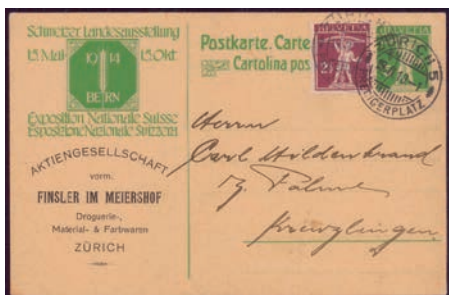 Schweizer Landesausstellung
15. Mai 15. Okt.
1914
BERN
Exposition Nationale Suisse
Esposizione Nazionale Svizzera
AKTIENGESELLSCHAFT
vorm.
FINSLER IM MEIERSHOF
Droguerie-,
Material- & Farbwaren
ZÜRICH
Postkarte. Carte
Cartolina pos
HELVETIA
ZÜRICH 5
Herrn
Carl Hildenbrand
z. Palme
Kreuzlingen.